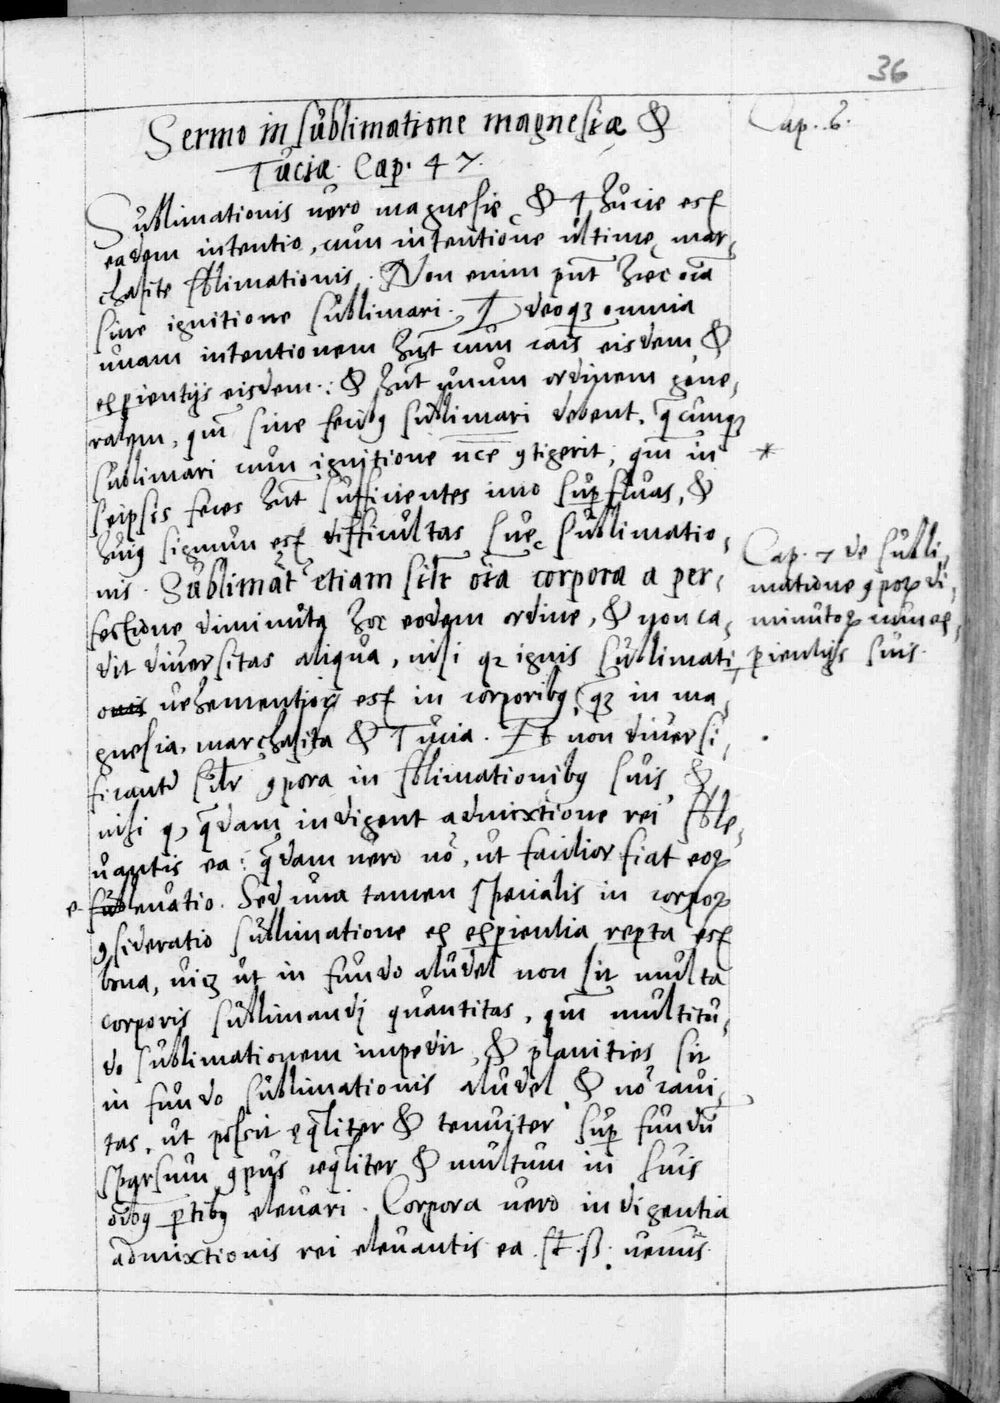 36
Sermo in sublimatione magnesiæ &
Tuciæ. Cap. 47.
Cap. 6.
Sublimationis vero magnesię & Thucie est
eadem intentio, cum intentione ultimę mar,
chasite sblimationis. Non enim pn̄t hęc oīa
sine ignitione sublimari. Ideoqꝫ omnia
unam intentionem hn̄t cum cais eisdem &
exꝑientijs eisdem: & hn̄t unum ordinem gene,
ralem, qm̄ sine fecibꝰ sublimari debent, q̄cunqꝫ
sublimari cum ignitione ncē ꝯtigerit, qm̄ in *
seipsis feces hn̄t sufficientes imo suꝑfluas, &
huiꝰ signum est difficultas suę sublimatio,
nis. Sublimāt etiam silr oīa corpora a per,
fectione diminuta hoc eodem ordine, & non ca,
dit diversitas aliqua, nisi qꝫ ignis sublimati
onis vehementior est in corporibꝰ, qꝫ in ma,
gnesia, marchasita & Tucia. Et non diversi,
ficantᷣ silr ꝯpora in sblimationibꝰ suis &,
nisi ꝙ q̄dam indigent admixtione rei sble,
vantis ea: q̄dam vero nō, ut facilior fiat eoꝝ
e- sublevatio. Sed una tamen specialis in corpoꝝ
ꝯsideratio sublimatione ex exꝑientia reꝑta est
bona, viꝫ ut in fundo aludel non sit multa
corporis sublimandi quantitas, qm̄ multitu,
do sublimationem impedit, & planities sit
in fundo sublimationis aludel & nō cavi,
tas, ut possit ęq̄liter & tenuiter suꝑ fundū
sparsum ꝯpus æq̄liter & multum in suis
oībꝰ ꝑtibꝰ elevari. Corpora vero indigentia
admixtionis rei elevantis ea st̄. ß. venus
Cap. 7 de subli,
matione ꝯpoꝝ di,
minutoꝝ cum ex,
ꝑientijs suis.